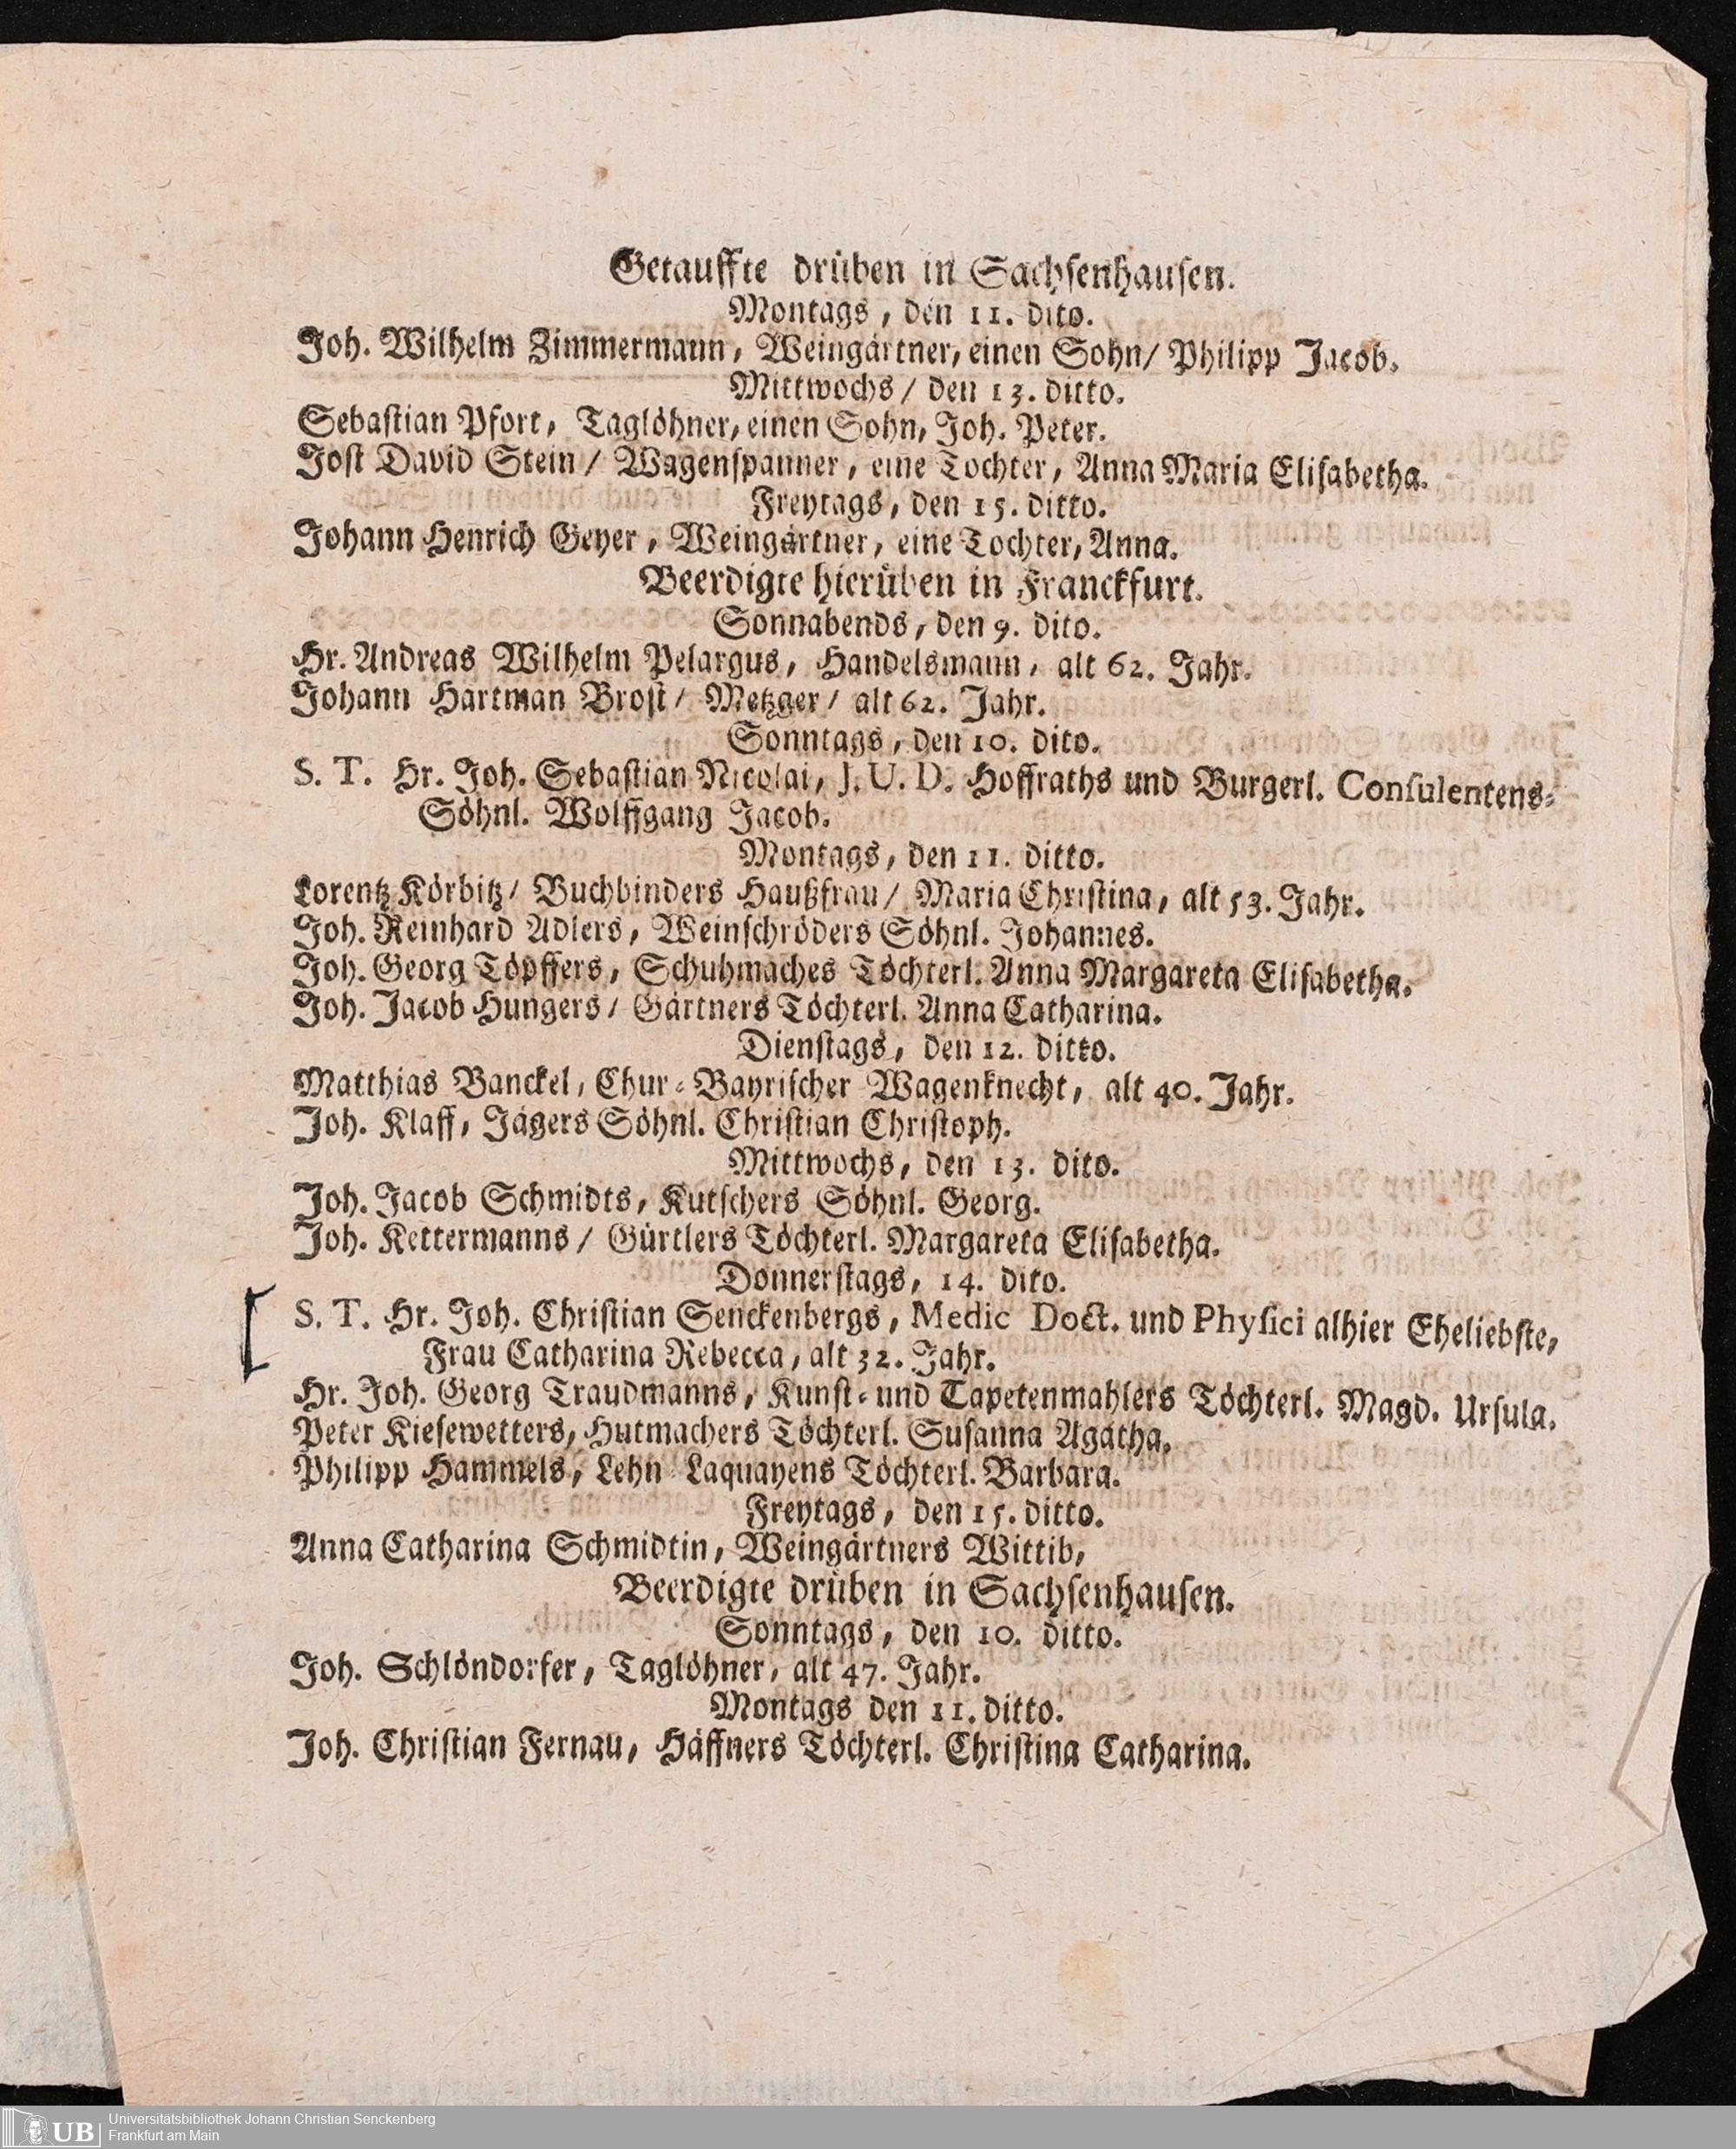 Getauffte drüben in Sachsenhausen.
Montags, den 11. dito.
Joh. Wilhelm Zimmermann, Weingärtner, einen Sohn/ Philipp Jacob.
Mittwochs/ den 13. ditto.
Sebastian Pfort, Taglöhner, einen Sohn, Joh. Peter.
Jost David Stein/ Wagenspanner, eine Tochter, Anna Maria Elisabetha.
Freytags, den 15. ditto.
Johann Henrich Geyer, Weingärtner, eine Tochter, Anna.
Beerdigte hierüben in Franckfurt.
Sonnabends, den 9. dito.
Hr. Andreas Wilhelm Pelargus, Handelsmann, alt 62. Jahr.
Johann Hartman Brost/ Metzger/ alt 62. Jahr.
Sonntags, den 10. dito.
S. T. Hr. Joh. Sebastian Nicolai, J. U. D. Hoffraths und Burgerl. Consulentens-
Söhnl. Wolffgang Jacob.
Montags, den 11. ditto.
Lorentz Körbitz/ Buchbinders Haußfrau/ Maria Christina, alt 53. Jahr.
Joh. Reinhard Adlers, Weinschröders Söhnl. Johannes.
Joh. Georg Töpffers, Schuhmaches Töchterl. Anna Margareta Elisabetha.
Joh. Jacob Hungers/ Gärtners Töchterl. Anna Catharina.
Dienstags, den 12. ditto.
Matthias Banckel, Chur-Bayrischer Wagenknecht, alt 40. Jahr.
Joh. Klaff, Jägers Söhnl. Christian Christoph.
Mittwochs, den 13. dito.
Joh. Jacob Schmidts, Kutschers Söhnl. Georg.
Joh. Kettermanns/ Gürtlers Töchterl. Margareta Elisabetha.
Donnerstags, 14. dito.
S. T. Hr. Joh. Christian Senckenbergs, Medic Doct. und Physici alhier Eheliebste,
Frau Catharina Rebecca, alt 32. Jahr.
Hr. Joh. Georg Traudmanns, Kunst- und Tapetenmahlers Töchterl. Magd. Ursula.
Peter Kiesewetters, Hutmachers Töchterl. Susanna Agatha.
Philipp Hammels, Lehn Laquayens Töchterl. Barbara.
Freytags, den 15. ditto.
Anna Catharina Schmidtin, Weingärtners Wittib,
Beerdigte drüben in Sachsenhausen.
Sonntags, den 10. ditto.
Joh. Schlöndorfer, Taglöhner, alt 47. Jahr.
Montags den 11. ditto.
Joh. Christian Fernau, Häffners Töchterl. Christina Catharina.
UB
Universitätsbibliothek Johann Christian Senckenberg
Frankfurt am Main